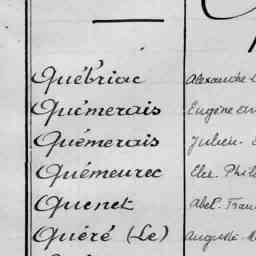 Québriac Alexandre
Quémerais Eugène
Quémerais Julien
Quémeurec
Quenet Abel
Quéré (Le) Auguste